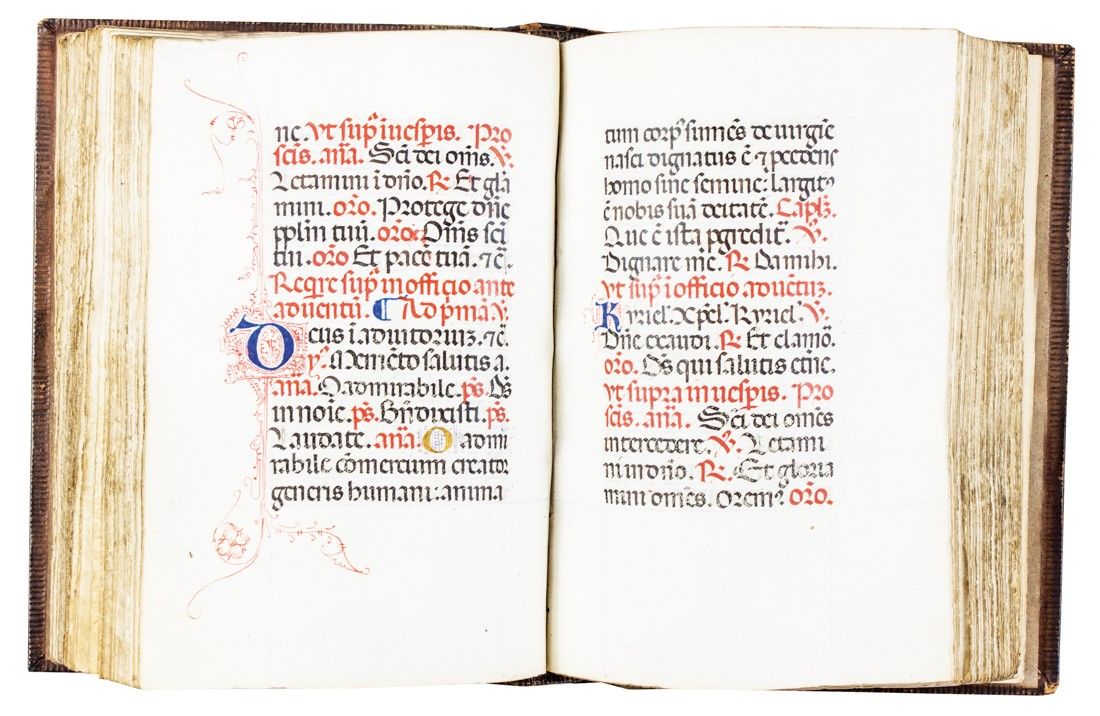 ne. Vt sup̄ i uesp̄is. Pro
scīs. ana͂. Scī dei om̄s. ℣.
Letamini ī dn̄o. ℞. Et glā
mini. oro͂. Protege dn̄e
pplm̄ tuū. oro͂ Om̄s scī
tui. oro͂ Et pacē tuā. ⁊c̄.
Reqr̄e sup̄ in officio ante
aduentū. ¶ Ad p̄mā ℣.
Deus ī adiutoriuꝫ. ⁊c̄.
yꝰ. Memēto salutis a.
ana͂. O admirabile. ps̄. Ds̄
in noīe. ps̄. Bn̄dixisti. ps̄.
Laudate. ana͂. O admi
rabile cōmercium creator
generis humani: anima
tum corpꝰ sumēs de uirgīe
nasci dignatus ē ⁊ pcedens
homo sine semine: largitꝰ
ē nobis suā deitatē. Caplꝫ.
Que ē ista pgredit᷑. ℣.
Dignare me. ℞. Da mihi.
Vt sup̄ ī officio aduētꝫ.
Kyriel. Xp̄el. Kyriel. ℣.
Dn̄e exaudi. ℞. Et clamo͂.
oro͂. Ds̄ qui salutis etn̄e.
Vt supra in uesp̄is. Pro
scīs. ana͂. Scī dei omēs
intercedere. ℣. Letami
ni in dn̄o. ℞. Et gloria
mini omēs. Oremꝰ oro͂.